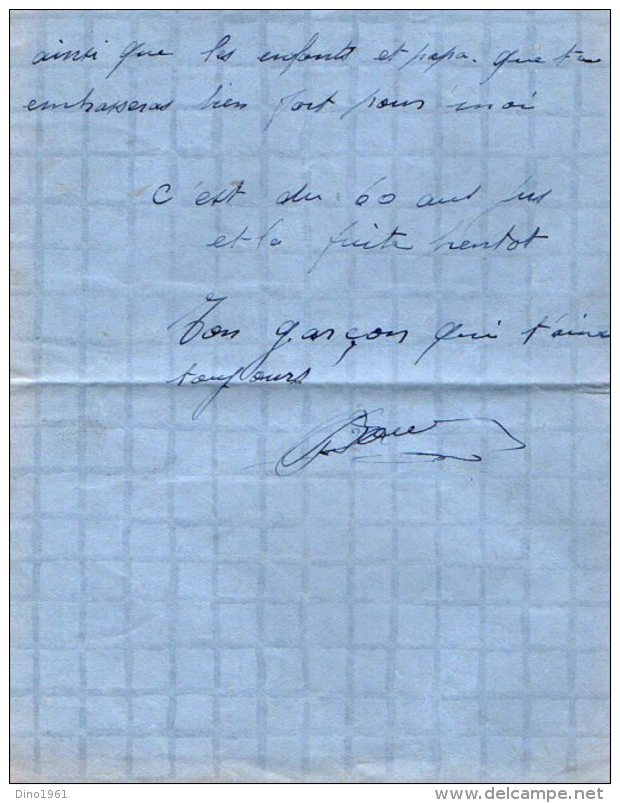 ainsi que les enfants et papa. que tu
embrasseras bien fort pour moi
c'est du 60 au jus
et la fuite bientot
Ton garçon qui t'aime
toujours
Dino1961
www.delcampe.net